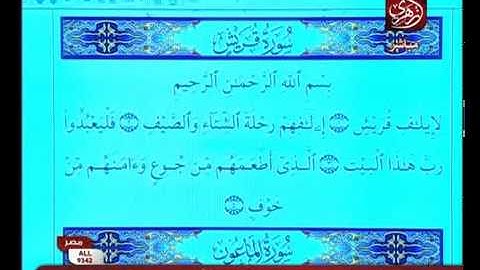 أزهري
مباشر
سُورَةُ قُرَيْشٍ
بِسْمِ ٱللَّهِ ٱلرَّحْمَـٰنِ ٱلرَّحِيمِ
لِإِيلَـٰفِ قُرَيْشٍ ۝١ إِۦلَـٰفِهِمْ رِحْلَةَ ٱلشِّتَآءِ وَٱلصَّيْفِ ۝٢ فَلْيَعْبُدُوا۟
رَبَّ هَـٰذَا ٱلْبَيْتِ ۝٣ ٱلَّذِىٓ أَطْعَمَهُم مِّن جُوعٍ وَءَامَنَهُم مِّنْ
خَوْفٍۭ ۝٤
سُورَةُ ٱلْمَاعُونِ
مصر
ALL
9342